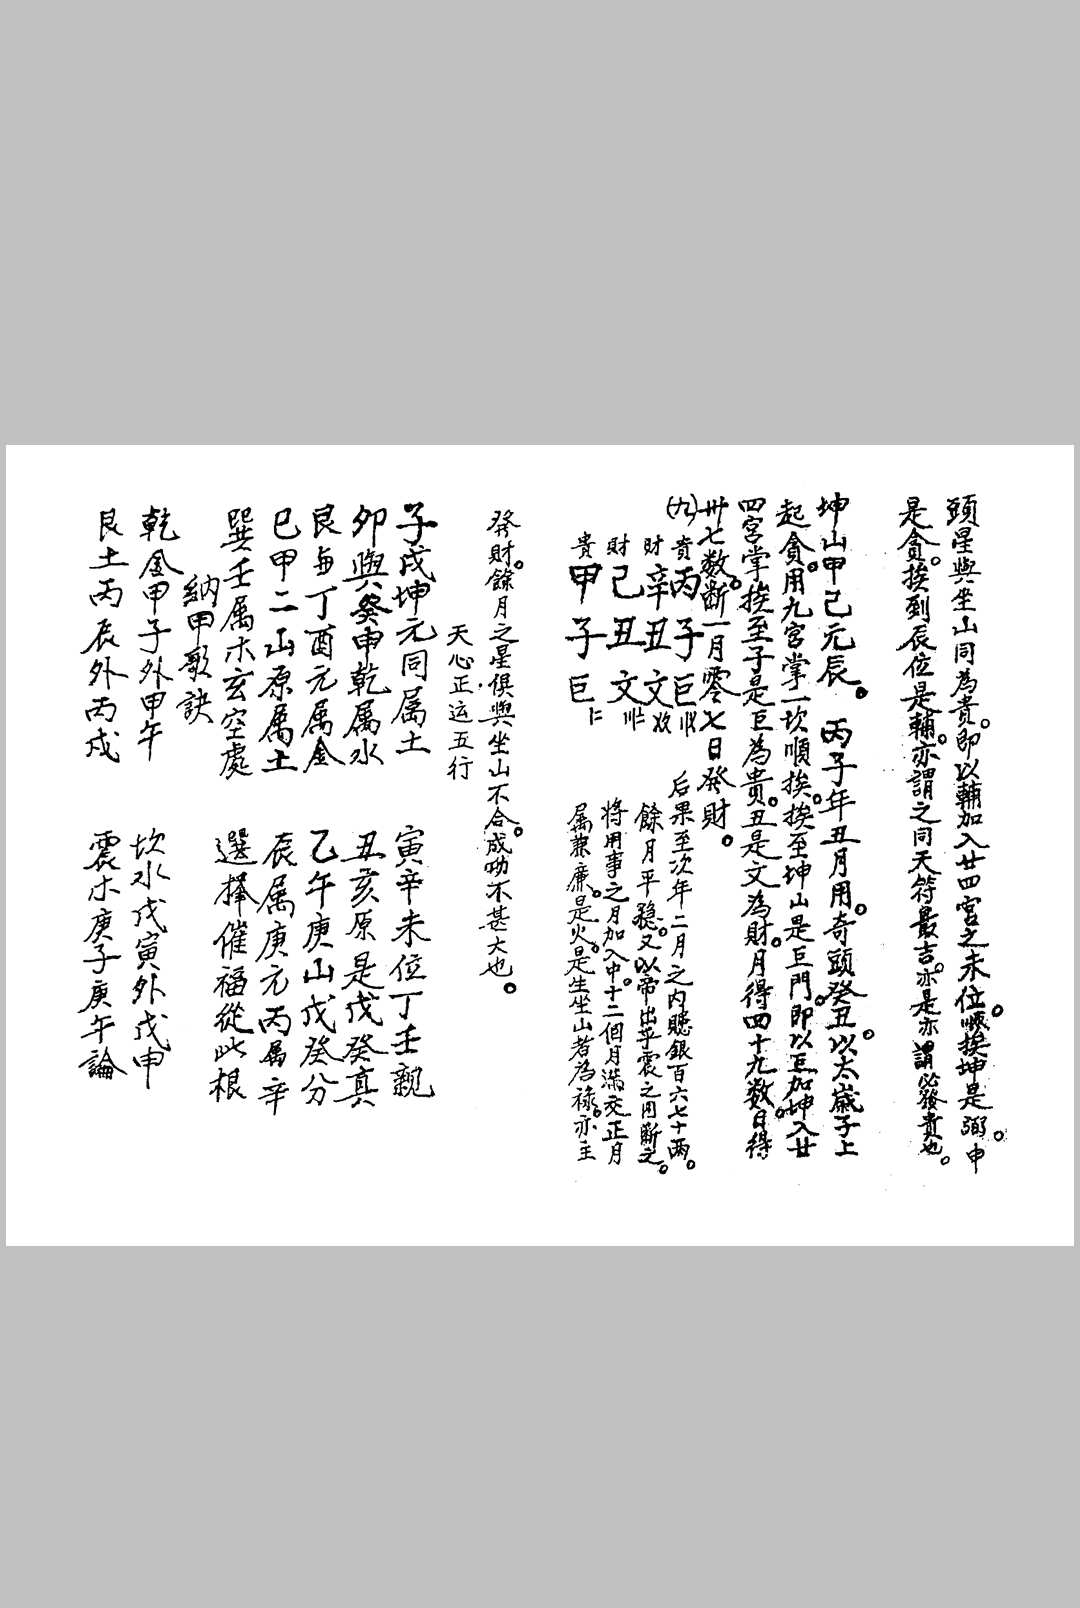 頭星與坐山同為貴。即以輔加入廿四宮之未位。順挨坤是弼。申
是貪。挨到辰位是輔。亦謂之同天符最吉。亦是亦謂必發貴也。
坤山甲己元辰。丙子年丑月用。奇頭癸丑。以太歲子上
起貪。用九宮掌一坎順挨。挨至坤山是巨門。即以巨加坤入廿
四宮掌挨至子是巨為貴。丑是文為財。月得四十九数。日得
卅七数。断一月零七日發財。
(九)
貴丙子巨
財辛丑文
財己丑文
貴甲子巨
后果至次年二月之內賭銀百六七十両。
餘月平穏。又以帝出乎震之月斷之。
將用事之月加入中。十二個月滿交正月
属兼廉。是火。是生坐山者為祿。亦主
發財。餘月之星俱與坐山不合。成功不甚大也。
天心正运五行
子戌坤元同属土 寅辛未位丁壬親
卯與癸申乾属水 丑亥原是戊癸真
艮與丁酉元属金 乙午庚山戊癸分
巳甲二山原属土 辰属庚元丙属辛
巽壬属木玄空處 選擇催福從此根
納甲歌訣
乾金甲子外甲午 坎水戊寅外戊申
艮土丙辰外丙戌 震木庚子庚午論